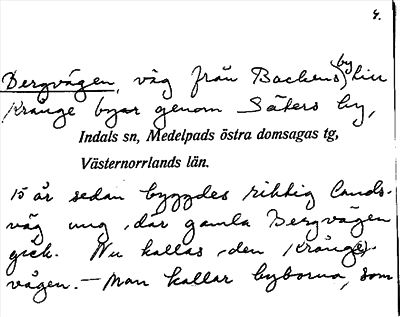 4.
Bergvägen, väg från Backens by till
Krånge byar genom Säters by,
Indals sn, Medelpads östra domsagas tg,
Västernorrlands län.
15 år sedan byggdes riktig lands-
väg ung. där gamla Bergvägen
gick. Nu kallas den Krånge(s)-
vägen. – Man kallar byborna, som